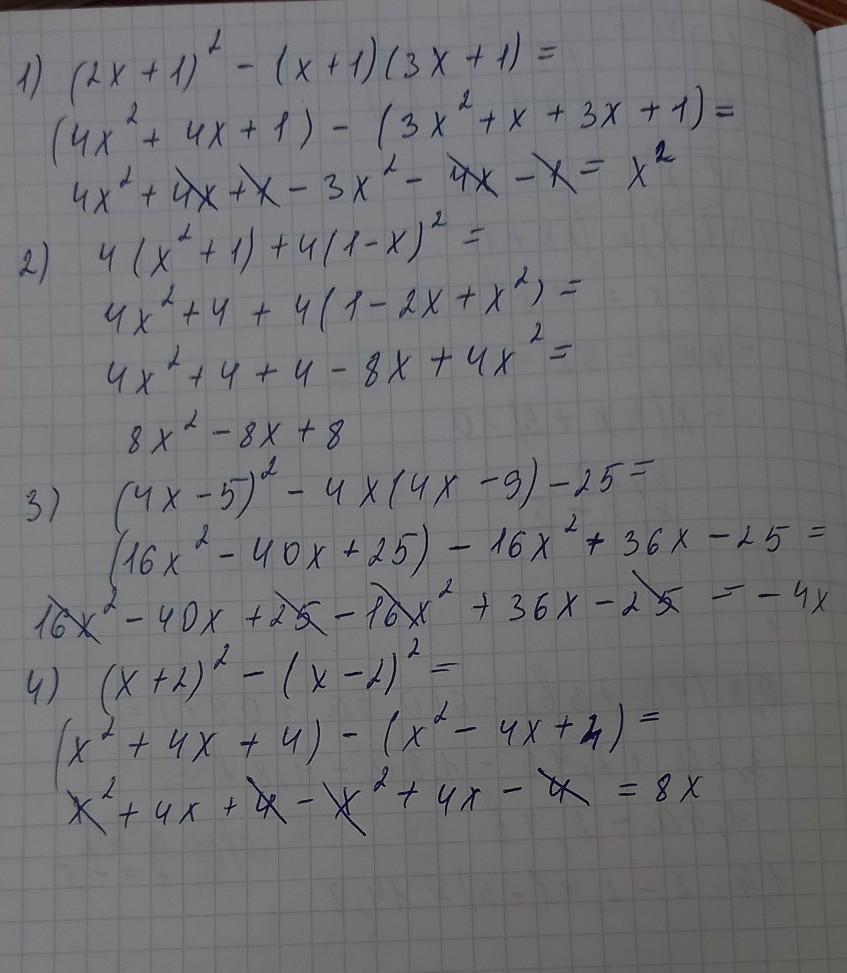 1) (2x + 1)² - (x+1)(3x + 1) =
(4x² + 4x + 1) - (3x² + x + 3x + 1) =
4x² + 4x + x - 3x² - 4x - x = x²
2) 4(x² + 1) + 4(1-x)² =
4x² + 4 + 4(1 - 2x + x²) =
4x² + 4 + 4 - 8x + 4x² =
8x² - 8x + 8
3) (4x - 5)² - 4x(4x - 9) - 25 =
(16x² - 40x + 25) - 16x² + 36x - 25 =
16x² - 40x + 25 - 16x² + 36x - 25 = - 4x
4) (x + 2)² - (x - 2)² =
(x² + 4x + 4) - (x² - 4x + 4) =
x² + 4x + 4 - x² + 4x - 4 = 8x